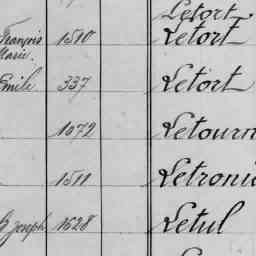 Letort
François 1510 Letort
Marie.
Emile 337 Letort
1072 Letourn
1511 Letroni
Joseph 1628 Letul